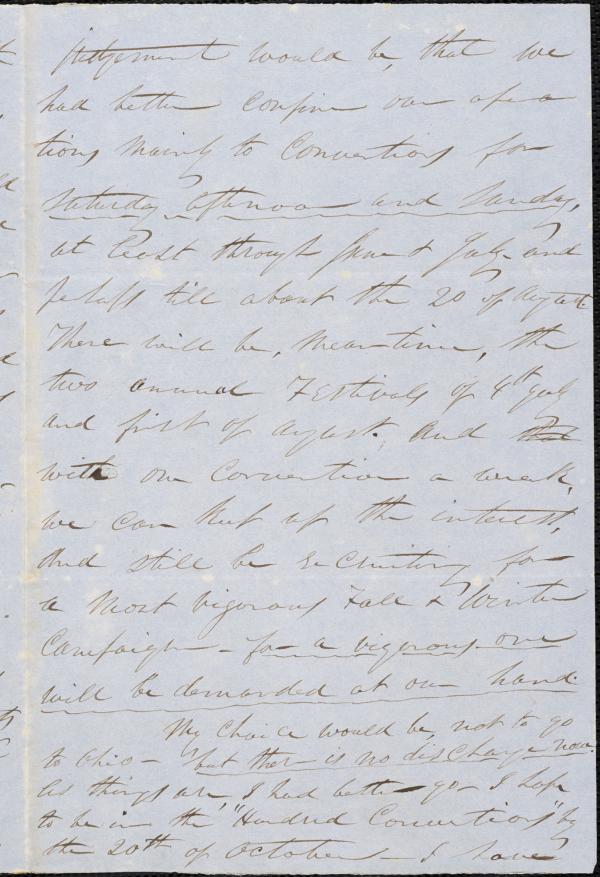 judgement would be, that we
had better confine our opera
tions mainly to Conventions for
Saturday afternoon and Sunday,
at least through June & July and
perhaps till about the 20 of August.
There will be, mean-time, the
two annual Festivals of 4th July
and first of August. And that
with one Convention a week,
we can keep up the interest,
And still be recruiting for
a most vigorous Fall & Winter
Campaign - for a vigorous one
will be demanded at our hand.
My choice would be, not to go
to Ohio - but there is no discharge now.
As things are, I had better go - I hope
to be in the "Hundred Conventions" by
the 20th of October - I have